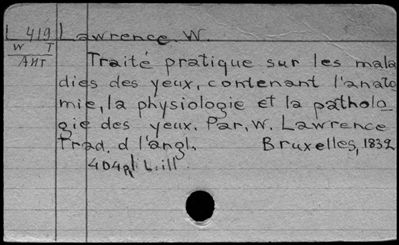 L 419 Lawrence. W.
W T
АНТ
Traité pratique sur les mala
dies des yeux, contenant l'anato
mie, la physiologie et la patholo-
gie des yeux. Par. W. Lawrence
Trad. d l'angl. Bruxelles, 1832
404 p. ill.